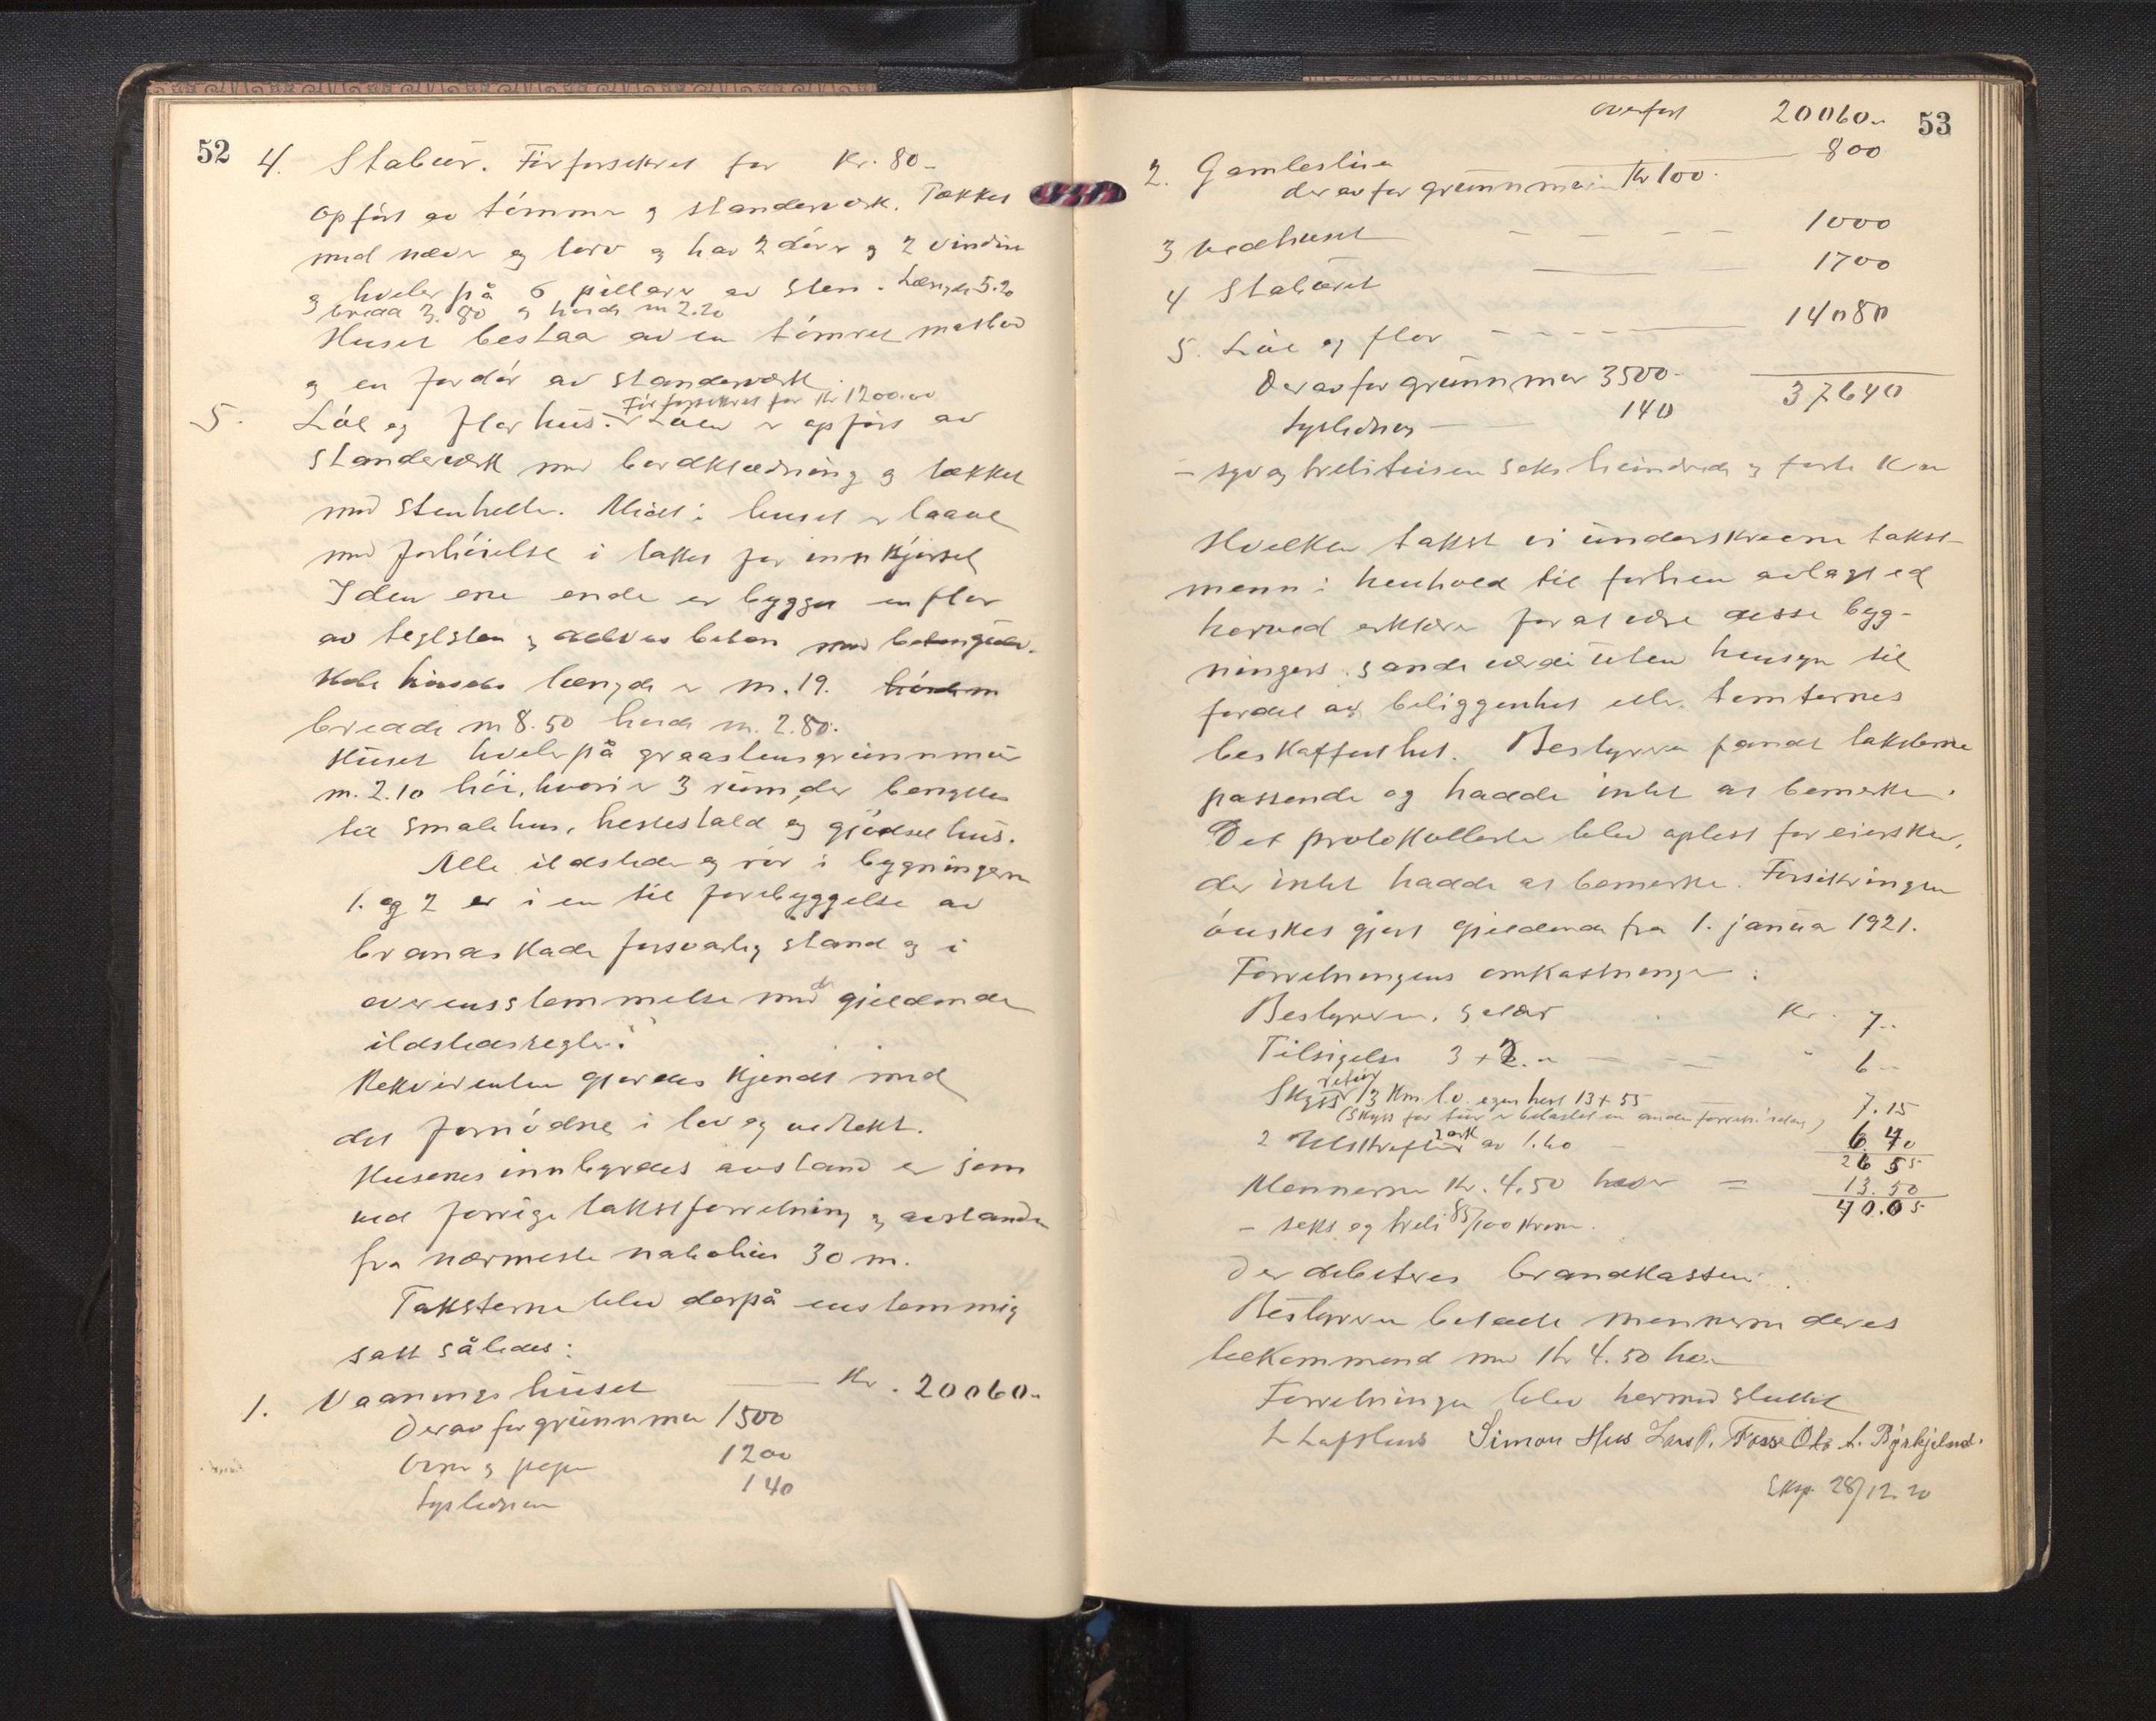 52
4. Stabur. Før forsikret for Kr. 80-
opført av tømmer og standerverk. Tækket
med never og torv og har 2 dører og 2 vinduer
og hviler på 6 pillarer av sten. Længde 5.20
bredde 3.80 og høide m 2.20
Huset bestaar av en tømret matbod
og en fordør av standerverk.
Før forsikret for Kr 1200.00
5. Løe og flor hus. Løen er opført av
standerverk med bordklædning og tækket
med stenheller. Midt i huset er laave
med forhøielse i taket for innkjørsel
I den ene ende er bygget en flor
av teglsten og beton med
Hele husets længde er m. 19.
bredde m 8.50 høide m. 2.80.
Huset hviler på graastensgrunnmur
m. 2.10 høi, hvori er 3 rum, der benyttes
til smalehus, hestestald og gjødselhus.
Alle ildsteder og rør i bygningerne
1. og 2 er i en til forebyggelse av
brandskade forsvarlig stand og i
overensstemmelse med de gjeldende
ildstedsregler.
Rekvirenten gjordes kjendt med
det fornødne i lov og vedtekt.
Husenes innbyrdes avstand er som
ved forrige takstforretning og avstanden
fra nærmeste nabohus 30 m.
Taksterne blev derpå enstemmig
satt således:
1. Vaaningshuset Kr. 20060.-
Derav for grunnmur 1500
Ovner og piper 1200
Lysledning 140
53
overført 20060.-
2. Gamlestua 800
derav for grunnmur Kr 100.
3 Vedhuset 1000
4 Staburet 1700
5. Løe og flor 14080
Derav for grunnmur 3500- 37640
Lysledning 140
- syv og trelitusen seks hundrede og førti Kr
Hvilken takst vi underskrevne takst-
menn i henhold til forhen avlagt ed
herved erklærer for at være disse byg-
ningers sande værdi uten hensyn til
fordel av beliggenhet eller tomternes
beskaffenhet. Bestyreren fandt taksterne
passende og hadde intet at bemerke.
Det protokollerte blev oplest for eiersken,
der intet hadde at bemerke. Forsikringen
ønskes gjort gjeldende fra 1. januar 1921.
Forretningens omkostninger:
Bestyreren, salær Kr. 7.-
Tilsigelse 3 + 2.- 6-
retur
Skyss 13 Km. l.v. egen hest 13 + 55 7.15
(Skyss for tur er belastet en anden forretn. idag)
2 Utskrifter 2 ark av 1.60 6.40
26 55
Mennerne Kr. 4.50 hver = 13.50
40.05
- seks og treti 85/100 Kroner.
Der debiteres brandkassen.
Bestyreren betalte mennerne deres
tilkommende med Kr 4.50 hver
Forretningen blev hermed sluttet
L Lofthus Simon Hus Lars P. Fosse Ola A. Byrkjeland.
Eksp. 28/12.20